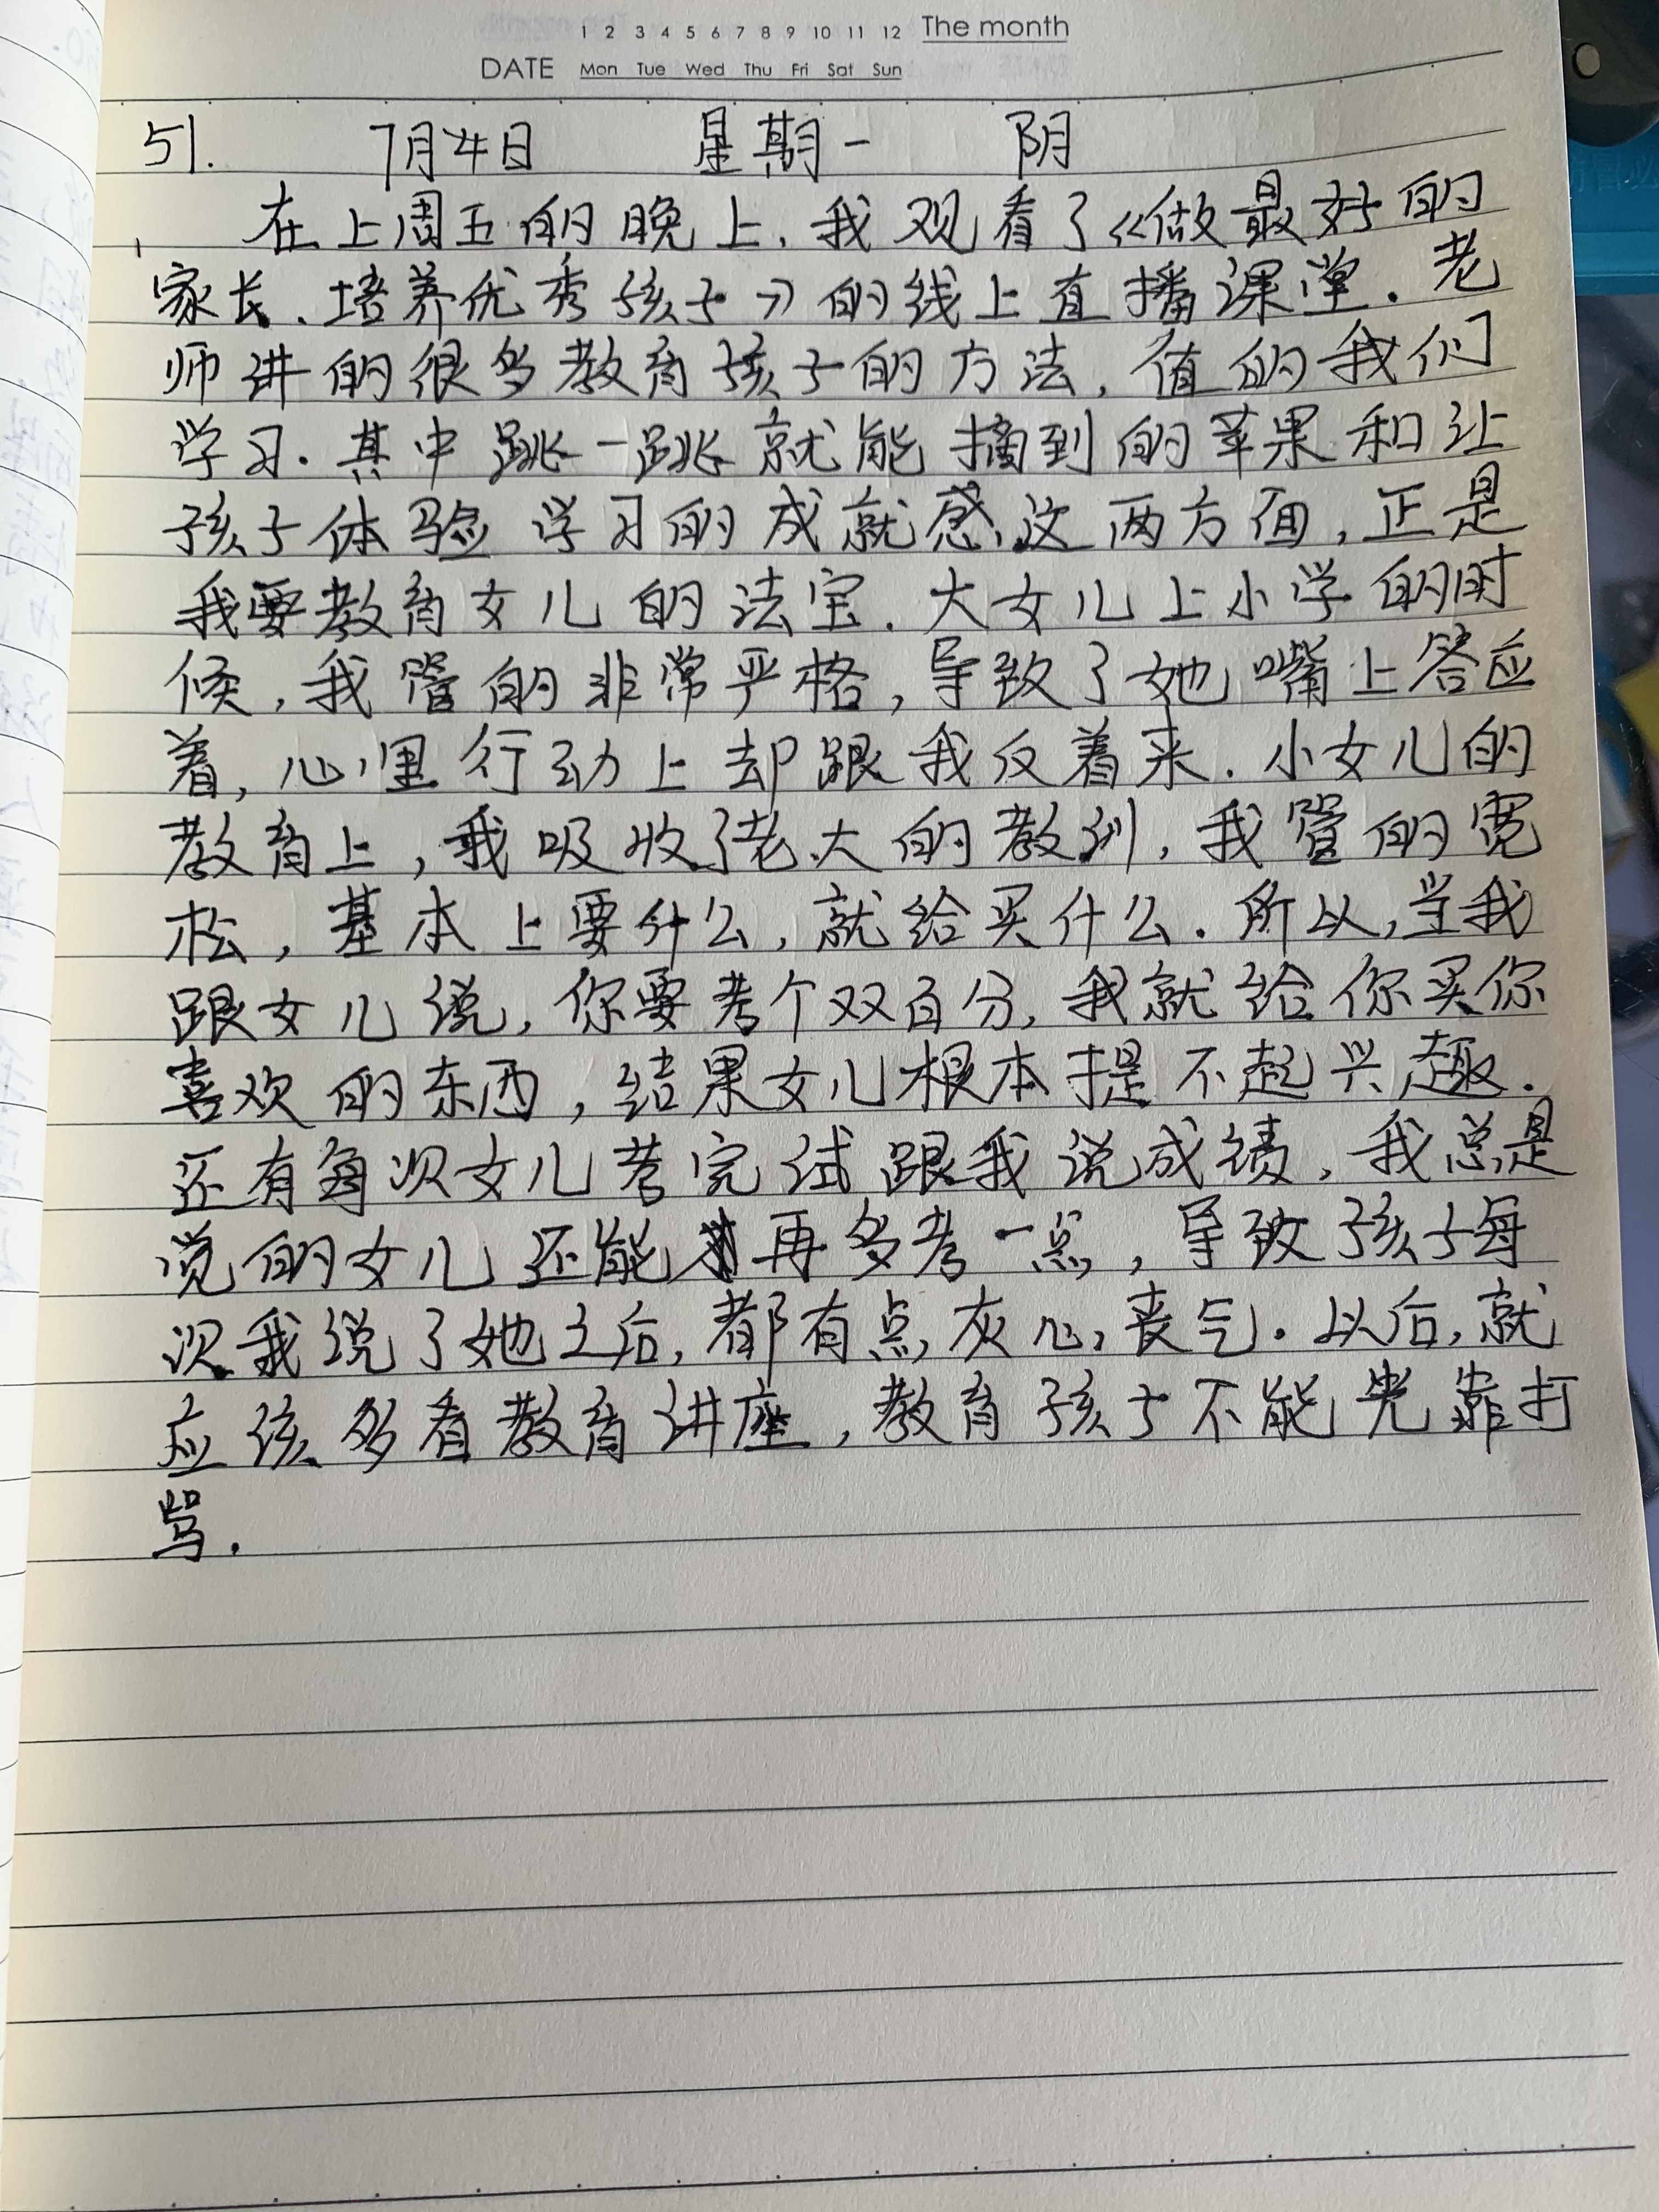 1 2 3 4 5 6 7 8 9 10 11 12 The month
DATE Mon Tue Wed Thu Fri Sat Sun
51. 7月4日 星期一 阴
在上周五的晚上,我观看了《做最好的
家长、培养优秀孩子》的线上直播课堂.老
师讲的很多教育孩子的方法,值的我们
学习.其中跳一跳就能摘到的苹果和让
孩子体验学习的成就感,这两方面,正是
我要教育女儿的法宝.大女儿上小学的时
候,我管的非常严格,导致了她嘴上答应
着,心里行动上却跟我反着来.小女儿的
教育上,我吸收了老大的教训,我管的宽
松,基本上要什么,就给买什么.所以,当我
跟女儿说,你要考个双百分,我就给你买你
喜欢的东西,结果女儿根本提不起兴趣.
还有每次女儿考完试跟我说成绩,我总是
觉的女儿还能再多考一点,导致孩子每
次我说了她之后,都有点灰心,丧气.以后,就
应该多看教育讲座,教育孩子不能光靠打
骂.